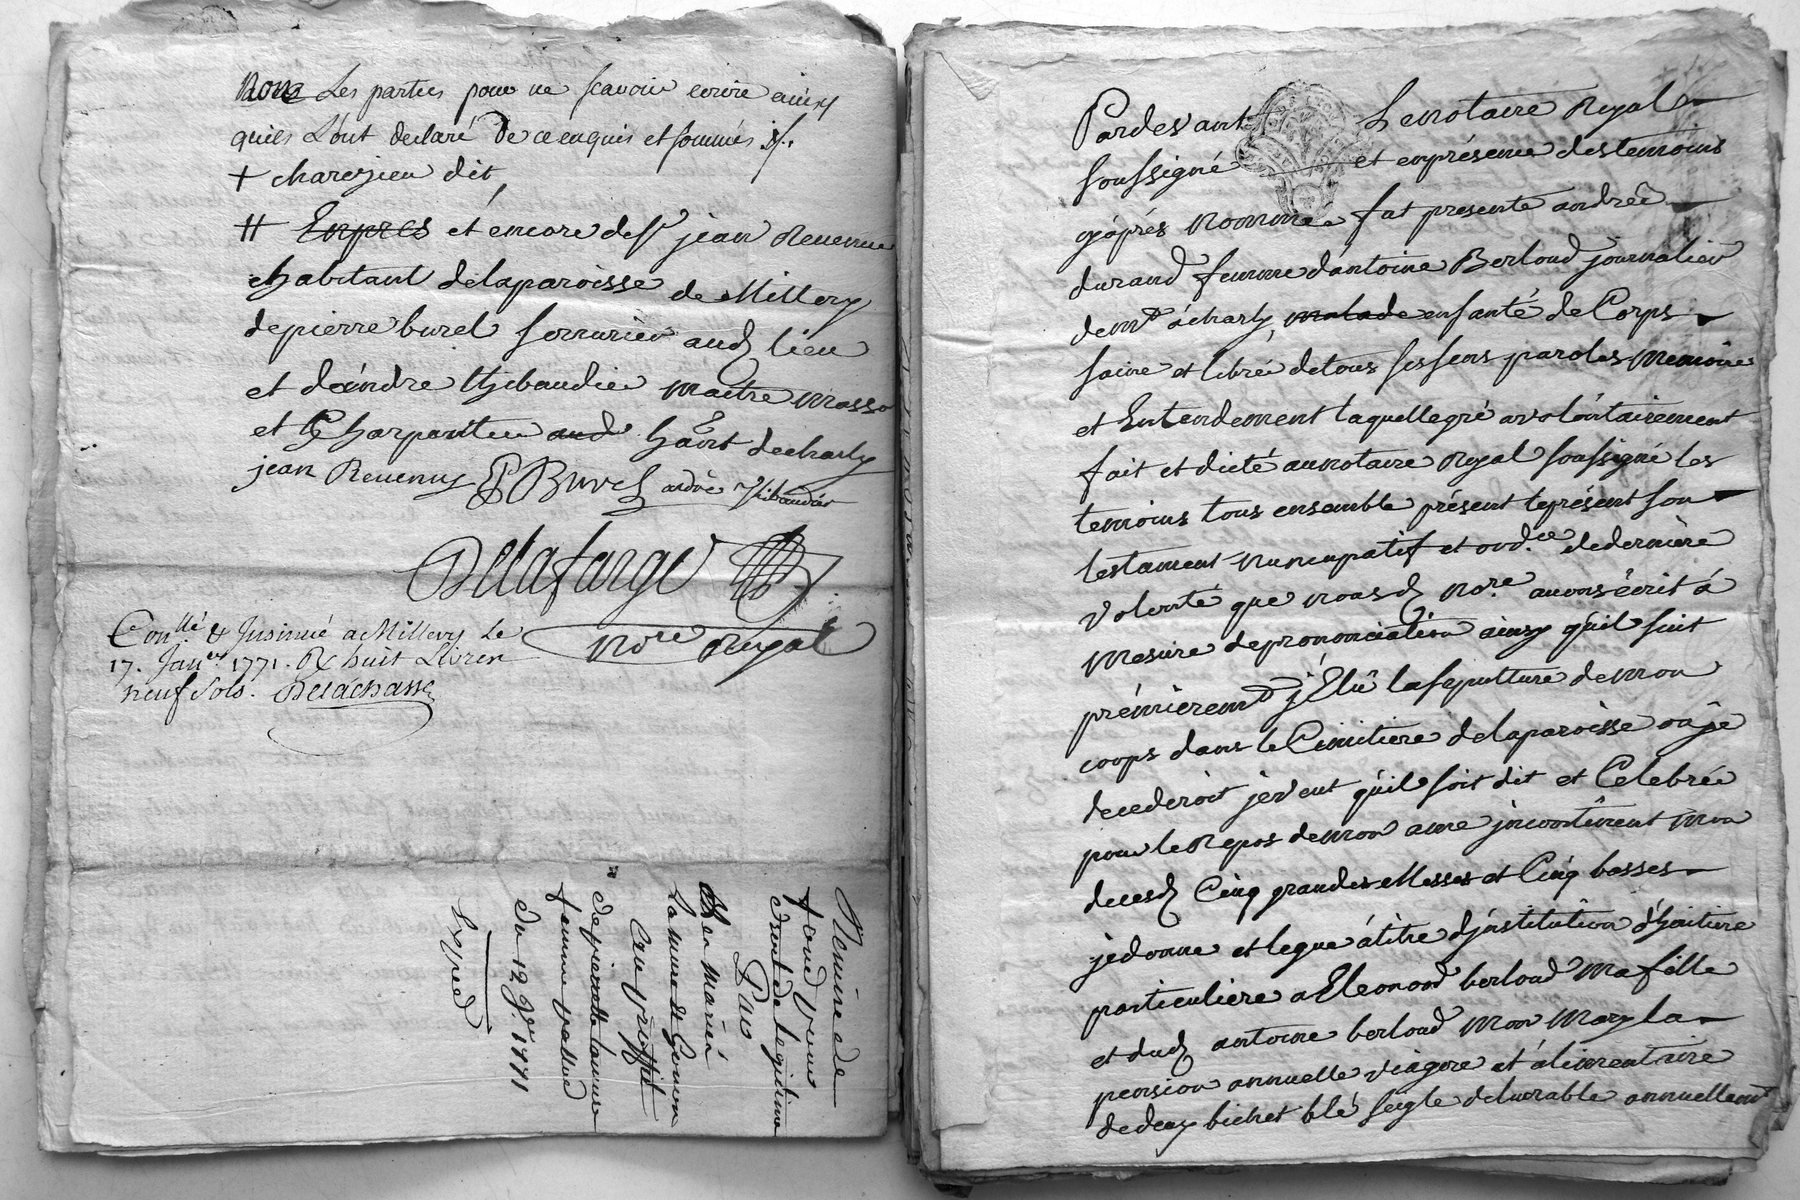 non Les parties pour ne scavoir ecrire ainsy
quils L'ont declaré De ce enquis et sommés ·/.
+ charezieu dit
# Enpres et encore de Sr jean Revenu
habitant delaparoisse de Millery
depierre burel serrurier aud lieu
et d'andre thibaudier maitre masso
et Charpentier aud habnt decharly
jean Revenus P Burel andré thibaudier
Delafarge
nore Royal
Conllé & Insinué a Millery Le
17. Janer 1771. R huit Livres
neuf sols. Delachassé
du 12 Jer 1771
Exped
Pardevant Le notaire Royal
soussigné et enprésence destemoins
cyaprés nommée fut presente andrée
durand femme d'antoine Berloud journalier
demt acharly malade ensanté de Corps
saine et libré detous ses sens paroles memoire
et Entendement laquellegré avolóntairement
fait et dicté aunotaire Royal soussigné les
temoins tous ensemble présent leprésent son
testament nuncupatif et ord.ce dederniére
volonté que nousd no.re avons écrit á
mesure deprononciation ainsy qu'il suit
prémierement j'Elû lasepulture demon
corps dans le Cimitiere delaparoisse oùje
decederoit jeveut qu'il soit dit et Celebrée
pour leRepos demon ame jncontinent mon
decesd Cinq grandes Messes et Cinq basses
jedonne et legue átitre d'jnstitution d'haitiere
particuliére a Eleonord berloud ma fille
et dud antoine berloud mon mary la
pension annuelle viagere et álimentaire
dedeux bichet blé seigle delivrable annuellemt